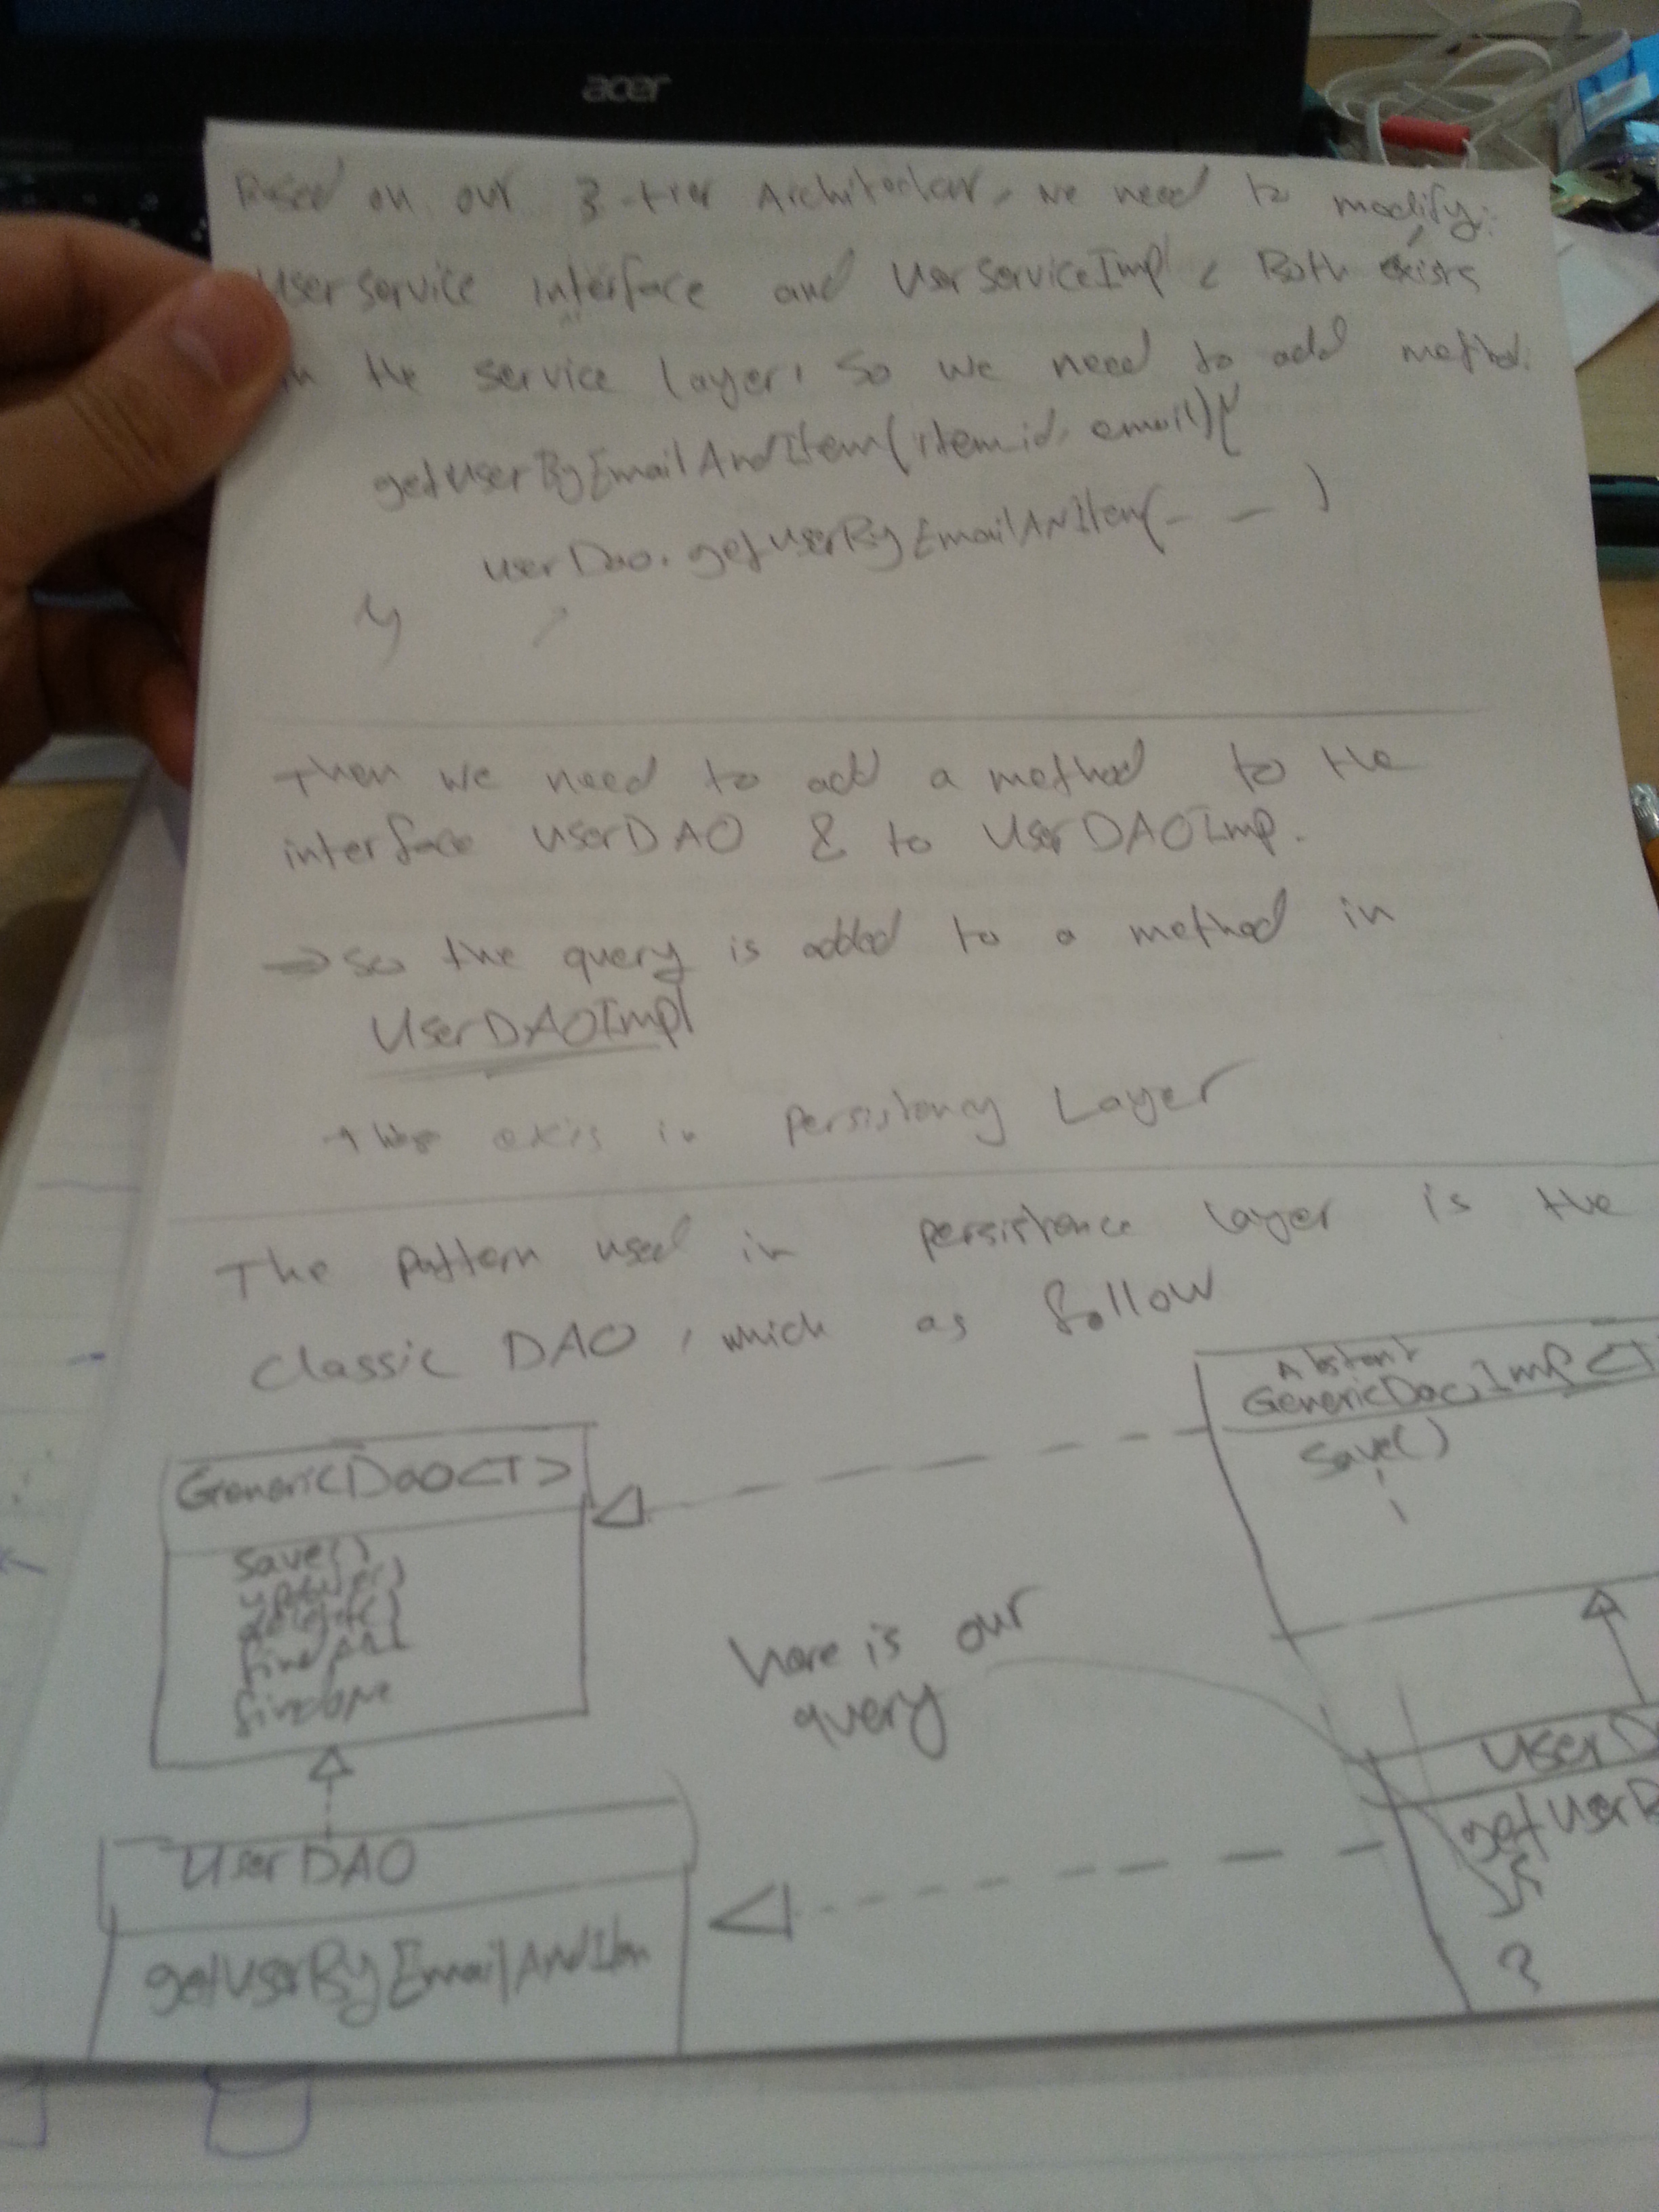 acer
Based on our 3-tier Architectur, we need to modify:
User service interface and UserServiceImp, Both exists
in the service layer, so we need to add method.
getUserByEmailAndItem(itemid, email){
userDao.getUserByEmailANItem(- - )
}
Then we need to add a method to the
interface UserDAO & to UserDAOImp.
→ so the query is added to a method in
UserDAOImpl
exis in Persistency Layer
The Pattern used in persistence layer is the
classic DAO, which as follow
Abstract
GenericDaoImp<T
save()
GenericDao<T>
save()
update()
delete()
findAll
findOne
here is our
query
UserD
getUserB
UserDAO
getUserByEmailAndItem